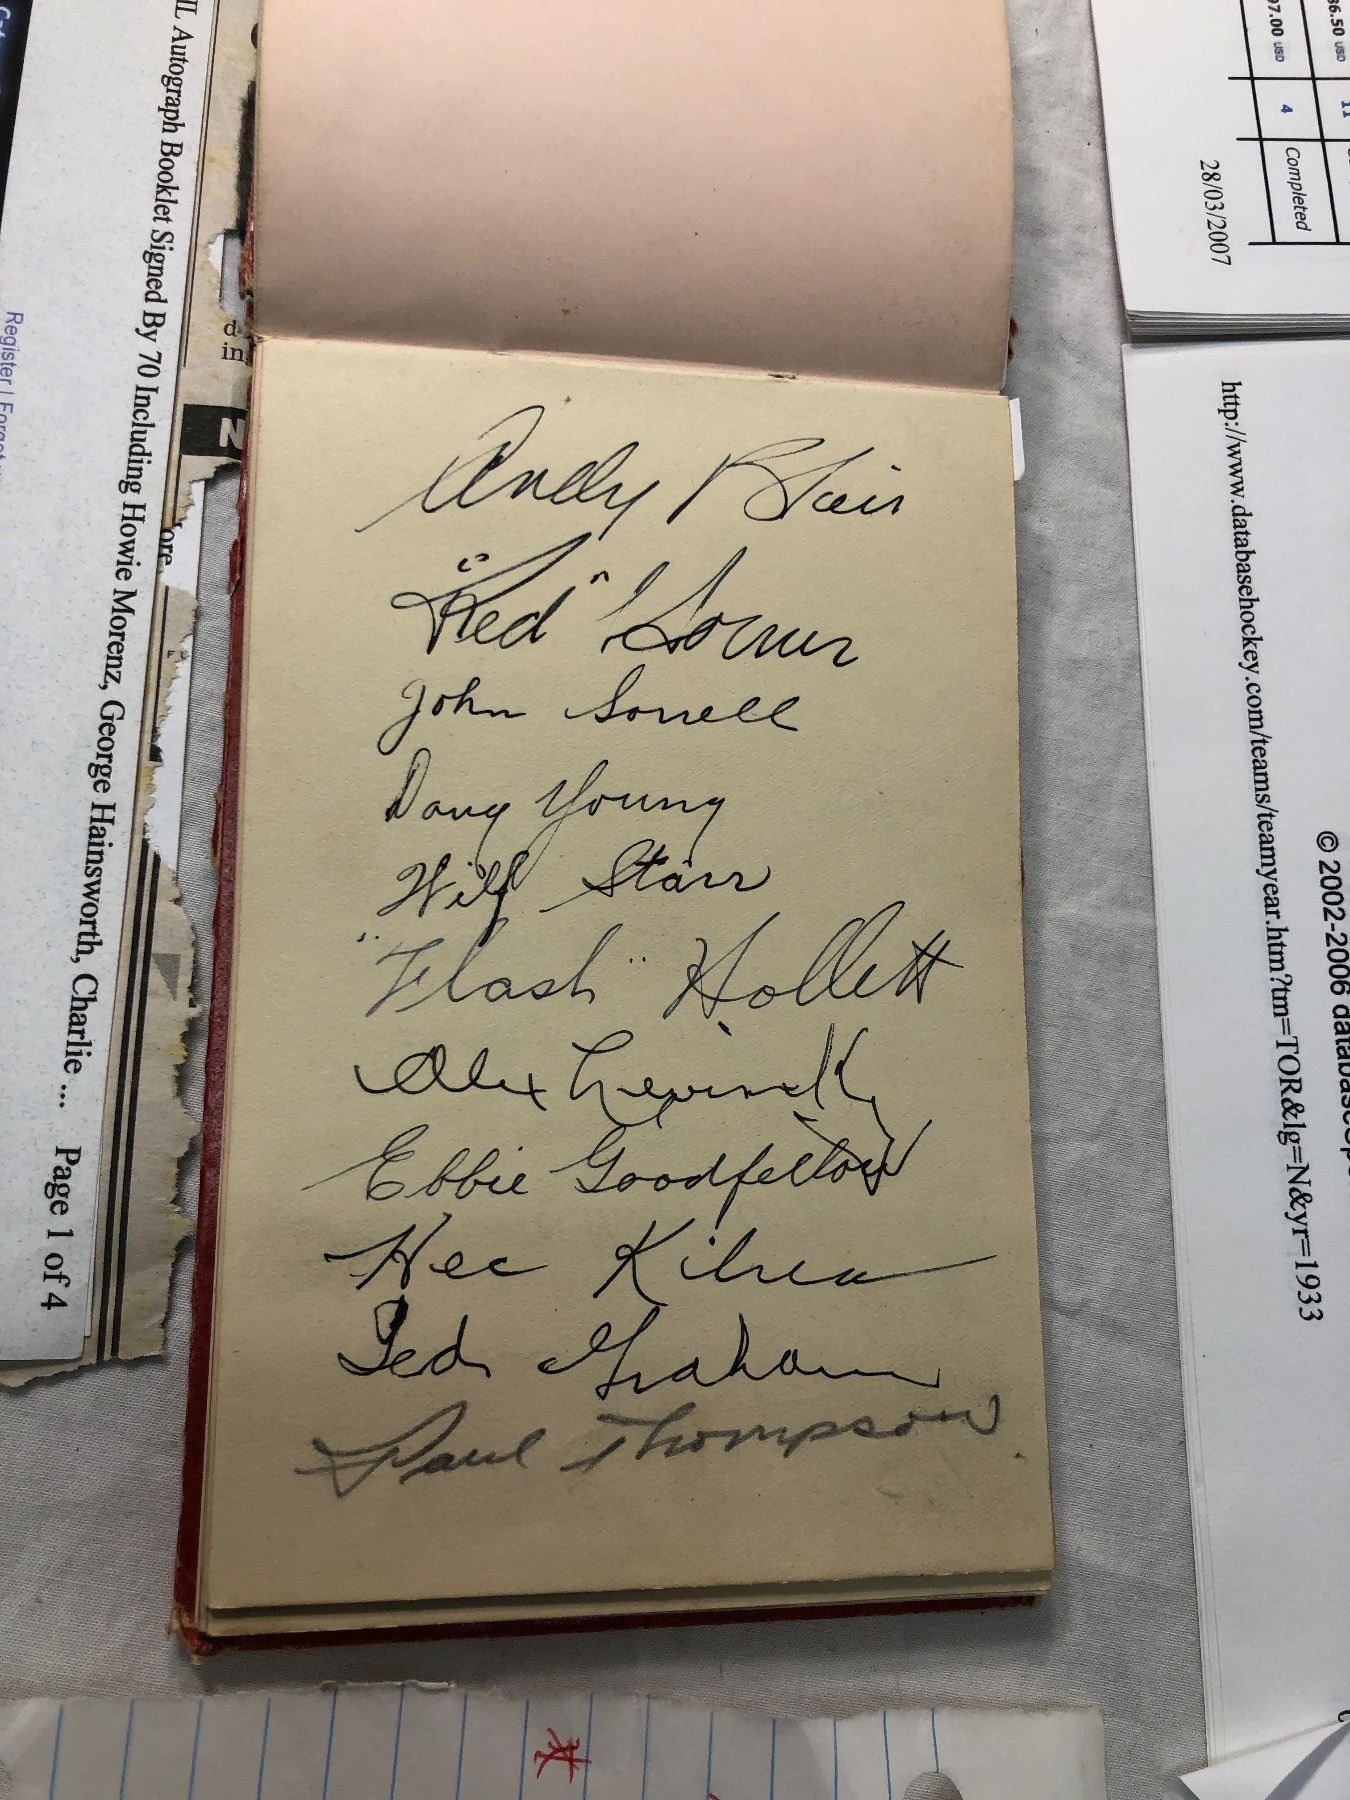 Andy Blair
"Red" Horner
John Sorrell
Doug Young
Wilf Starr
"Flash" Hollett
Alex Levinsky
Ebbie Goodfellow
Hec Kilrea
Ted Graham
Paul Thompson
IL Autograph Booklet Signed By 70 Including Howie Morenz, George Hainsworth, Charlie ... Page 1 of 4
Register |
d
in
N
ore
36.50 USD
97.00 USD
11
4
Completed
28/03/2007
http://www.databasehockey.com/teams/teamyear.htm?tm=TOR&lg=N&yr=1933
© 2002-2006